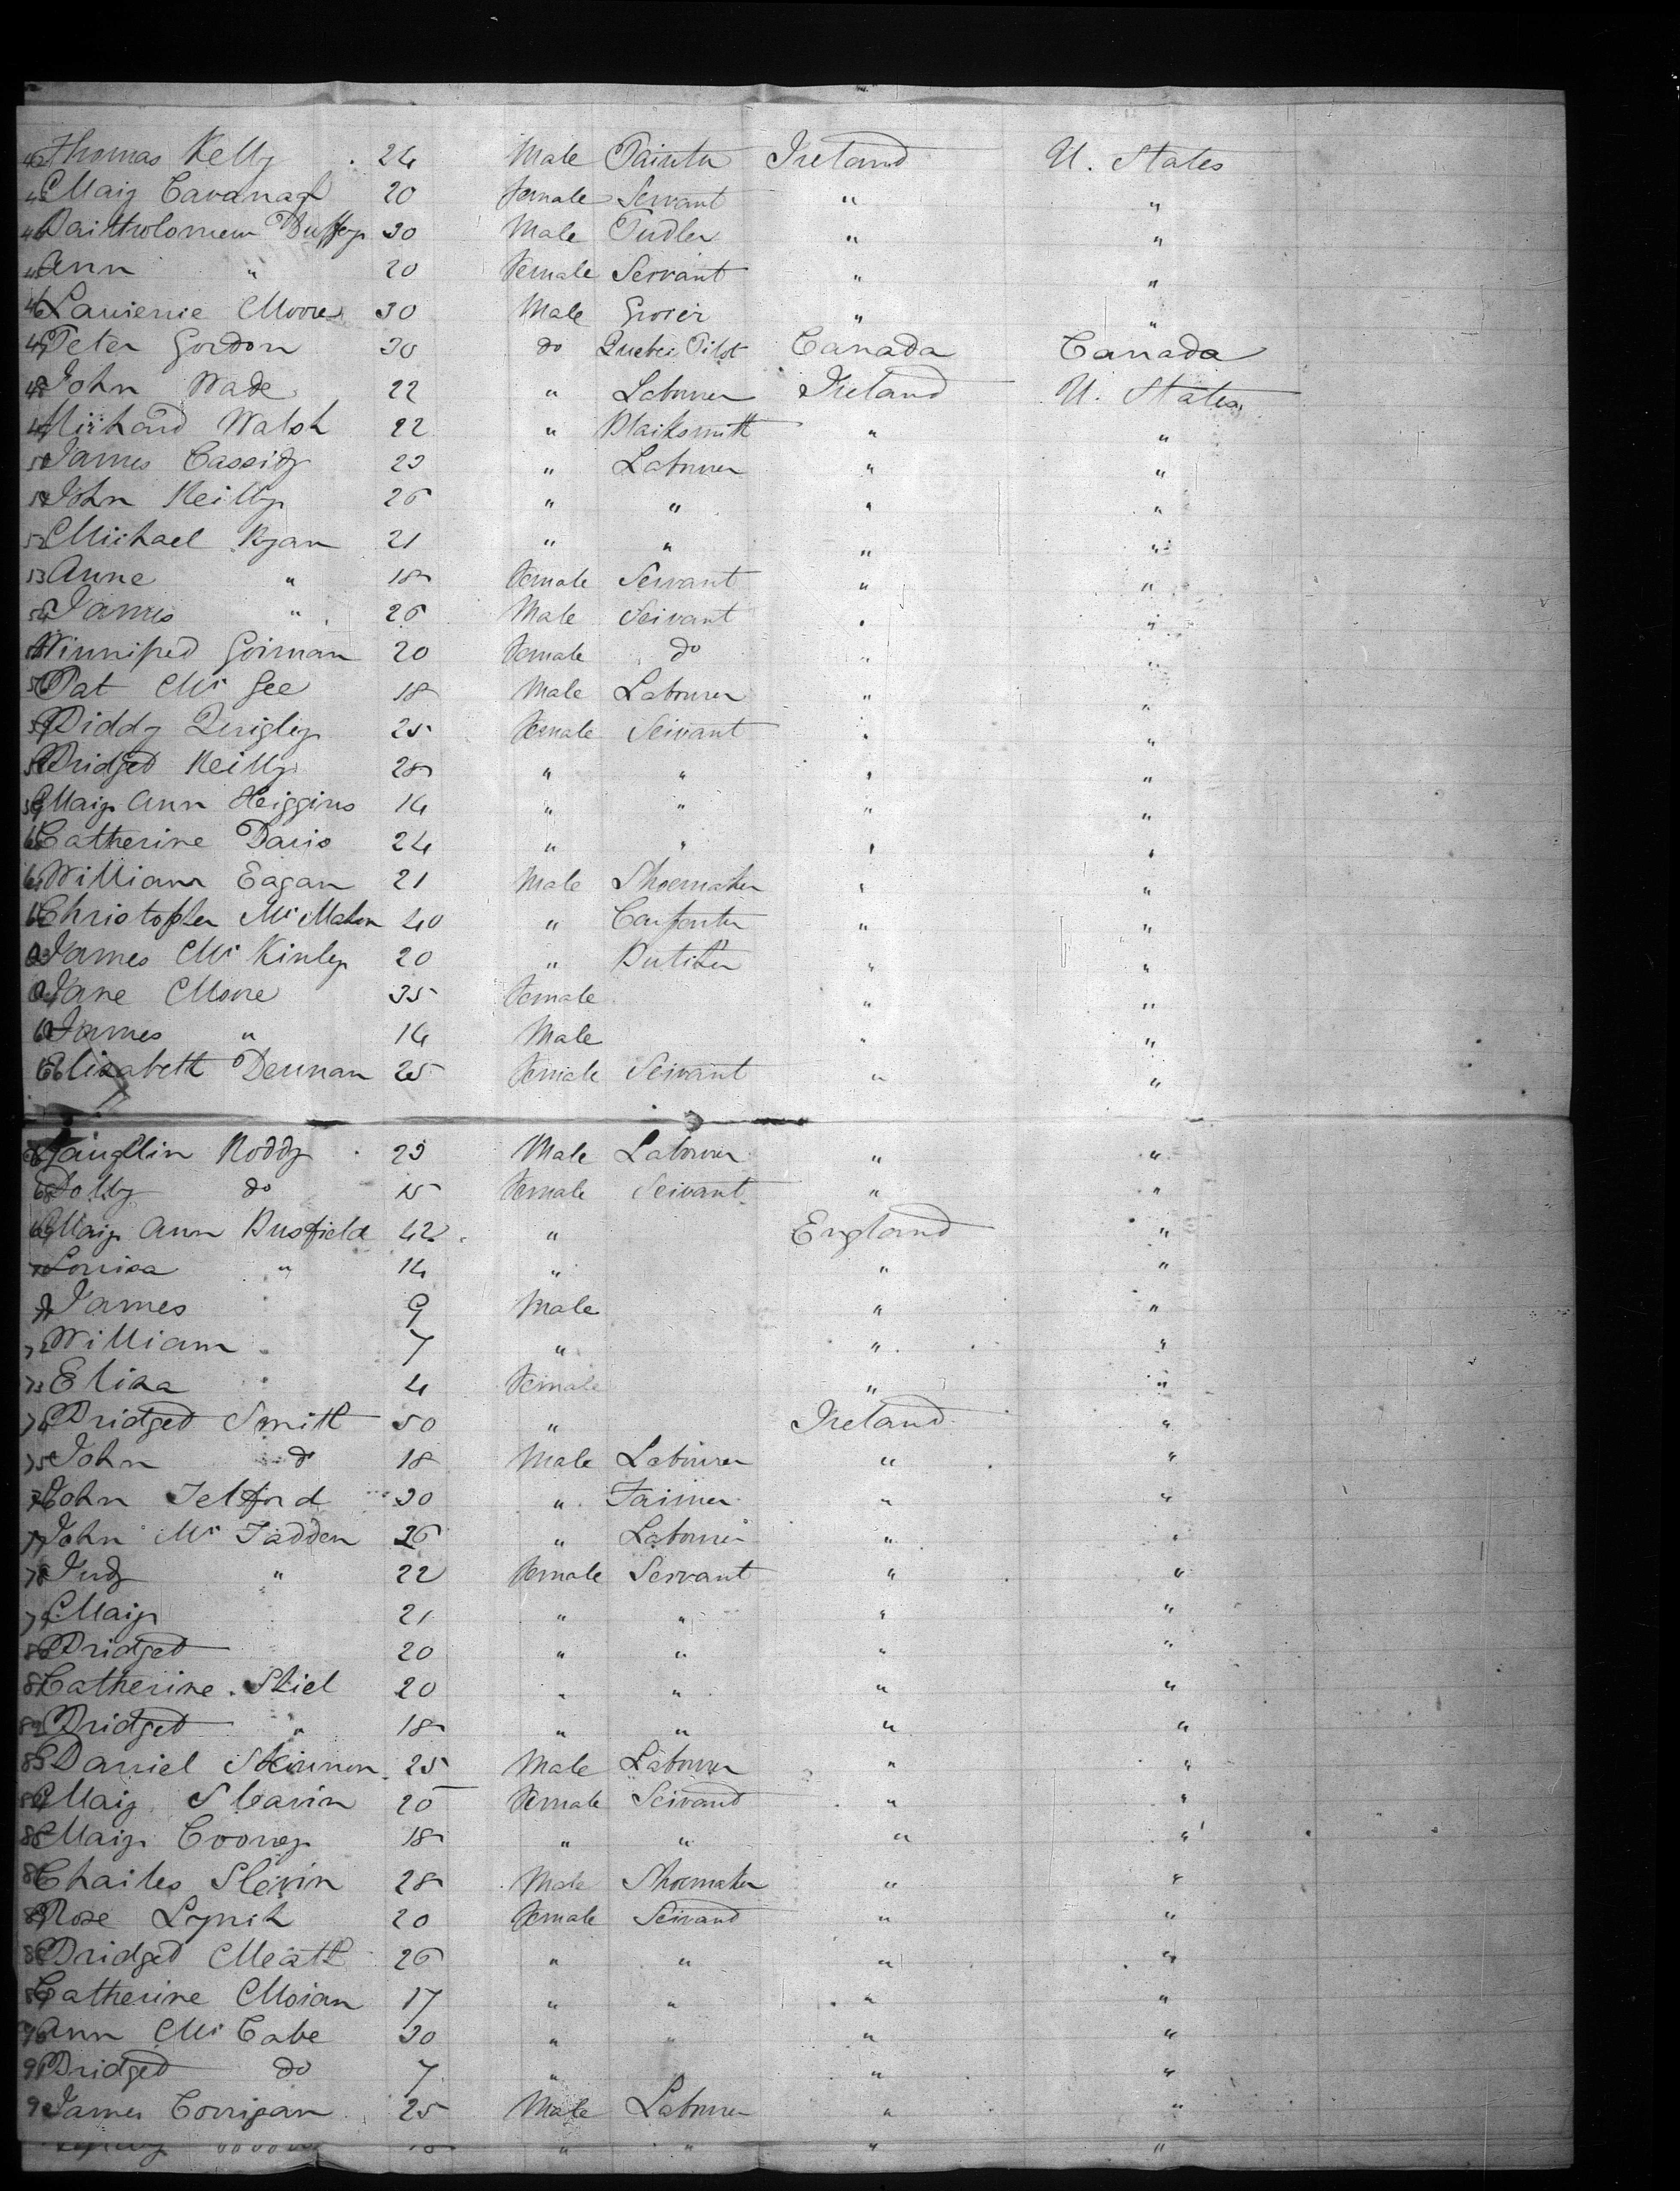 42 Thomas Kelly 24 Male Painter Ireland U. States
43 Mary Cavanagh 20 Female Servant " "
44 Bartholomew Duffey 30 Male Pedler " "
45 Ann " 20 Female Servant " "
46 Lawrence Moore 30 Male Grocer " "
47 Peter Gordon 30 do Quebec Pilot Canada Canada
48 John Wade 22 " Labourer Ireland U. States
49 Richard Walsh 22 " Blacksmith " "
50 James Cassidy 23 " Labourer " "
51 John Reilly 26 " " " "
52 Michael Ryan 21 " " " "
53 Anne " 18 Female Servant " "
54 James " 26 Male Servant " "
55 Winnifred Gorman 20 Female do " "
56 Pat Mc Gee 18 Male Labourer " "
57 Biddy Quigley 25 Female Servant " "
58 Bridged Reilly 28 " " " "
59 Mary Ann Heiggins 14 " " " "
60 Catherine Davis 24 " " " "
61 William Eagan 21 Male Shoemaker " "
62 Christopher Mc Mahon 40 " Carpenter " "
63 James Mc Kinley 20 " Butcher " "
64 Jane Moore 35 Female " "
65 James " 14 Male " "
66 Elizabeth Dennan 25 Female Servant " "
67 Laughlin Roddy 23 Male Labourer " "
68 Dolly do 15 Female Servant " "
69 Mary Ann Busfield 42 " England "
70 Louisa " 14 " " "
71 James " 9 Male " "
72 William " 7 " " "
73 Eliza " 4 Female " "
74 Bridged Smith 50 " Ireland "
75 John do 18 Male Labourer " "
76 John Telford 30 " Farmer " "
77 John Mc Fadden 26 " Labourer " "
78 Judy " 22 Female Servant " "
79 Mary 21 " " " "
80 Bridged 20 " " " "
81 Catherine Shiel 20 " " " "
82 Bridged " 18 " " " "
83 Daniel Skinnon 25 Male Labourer " "
84 Mary Slavin 20 Female Servand " "
85 Mary Cooney 18 " " " "
86 Charles Slevin 28 Male Shoemaker " "
87 Rose Lynch 20 Female Servand " "
88 Bridged Meath 26 " " " "
89 Catherine Moran 17 " " " "
90 Ann Mc Cabe 30 " " " "
91 Bridged do 7 " " "
92 James Corrigan 25 Male Labourer " "
" " " "